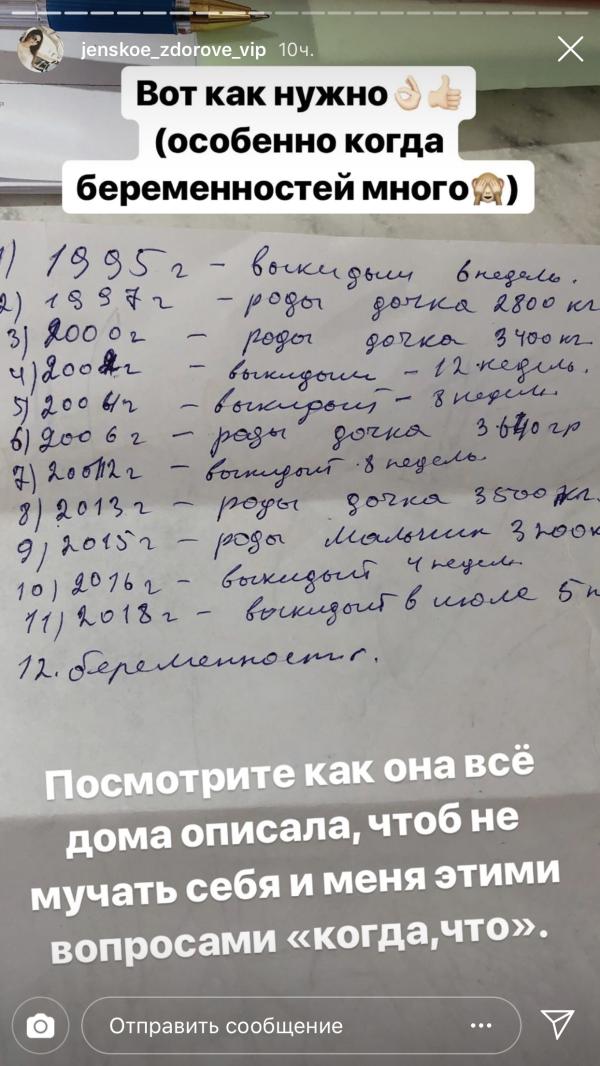 jenskoe_zdorove_vip 10ч.
Вот как нужно👌🏻👍🏻
(особенно когда
беременностей много🙈)
1) 1995 г – выкидыш 6 недель.
2) 1997 г – роды дочка 2800 кг
3) 2000 г – роды дочка 3400 кг
4) 2002 г – выкидыш – 12 недель.
5) 2004 г – выкидыш – 8 недель
6) 2006 г – роды дочка 3640 гр
7) 20012 г – выкидыш 8 недель
8) 2013 г – роды дочка 3500 кг.
9) 2015 г – роды мальчик 3200к
10) 2016 г – выкидыш 4 недель
11) 2018 г – выкидыш в июле 5 н
12. беременность.
Посмотрите как она всё
дома описала, чтоб не
мучать себя и меня этими
вопросами «когда,что».
Отправить сообщение